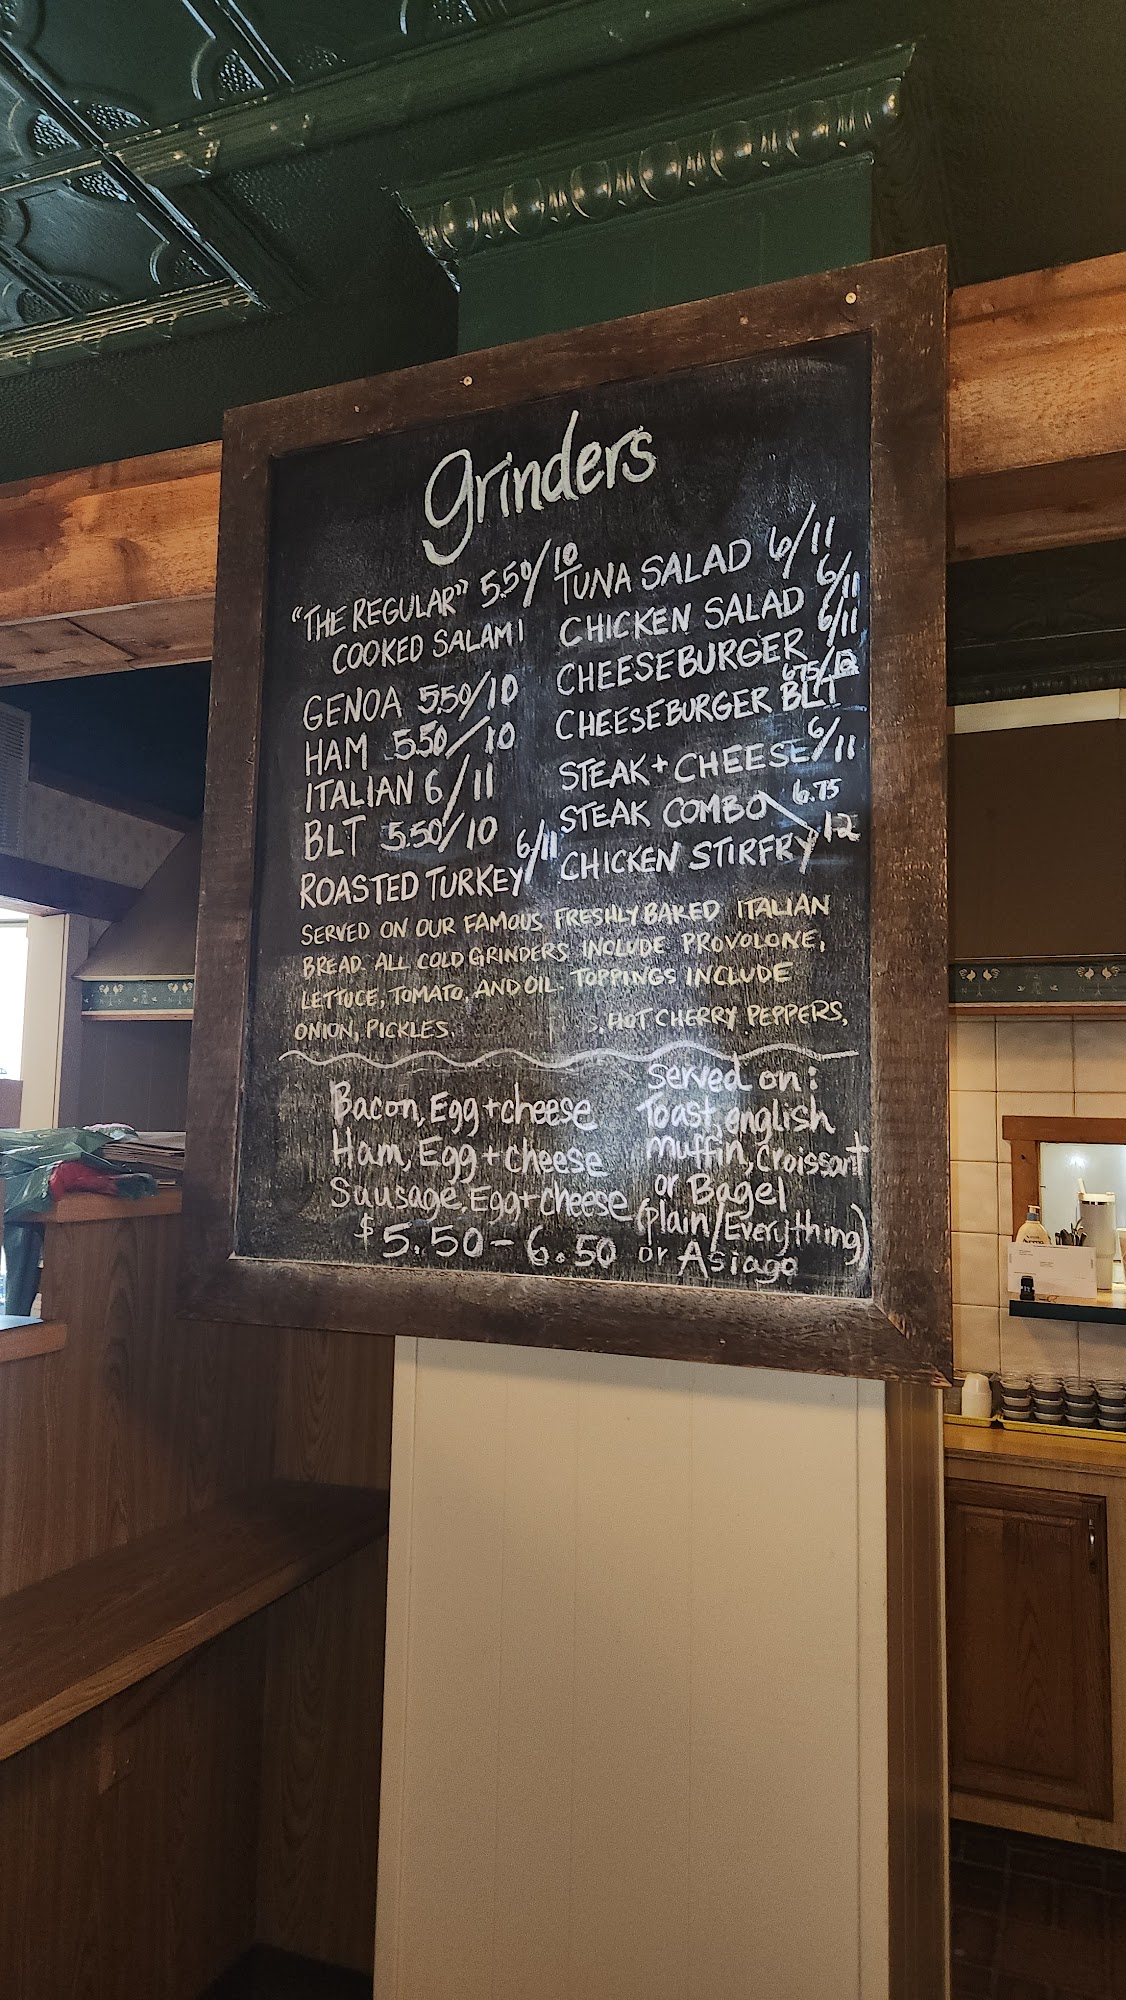 grinders
"THE REGULAR" 5.50/10
COOKED SALAMI
GENOA 5.50/10
HAM 5.50/10
ITALIAN 6/11
BLT 5.50/10
ROASTED TURKEY 6/11
TUNA SALAD 6/11
CHICKEN SALAD 6/11
CHEESEBURGER 6/11
CHEESEBURGER BLT 6.75/12
STEAK + CHEESE 6/11
STEAK COMBO 6.75
CHICKEN STIRFRY 12
SERVED ON OUR FAMOUS FRESHLY BAKED ITALIAN
BREAD. ALL COLD GRINDERS INCLUDE PROVOLONE,
LETTUCE, TOMATO, AND OIL. TOPPINGS INCLUDE
ONION, PICKLES, HOT CHERRY PEPPERS,
Bacon, Egg + cheese
Ham, Egg + cheese
Sausage, Egg + cheese
$5.50 - 6.50
Served on:
Toast, english
muffin, Croissant
or Bagel
(plain/Everything)
or Asiago